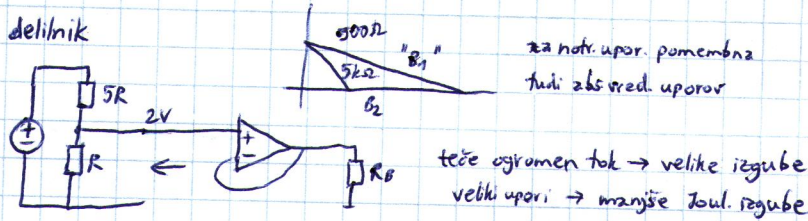 delilnik
5R
2V
R
+
-
R_B
500Ω
"B₁"
5kΩ
B₂
za notr. upor. pomembna
tudi abs vred. uporov
teče ogromen tok → velike izgube
veliki upori → manjše Joul. izgube